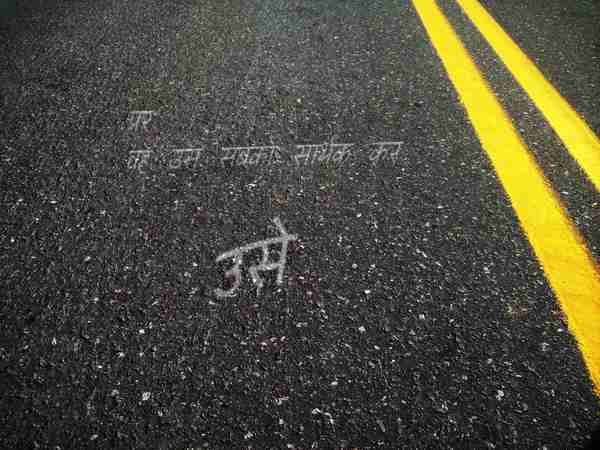 पर
वह उस सबको सार्थक कर
उसे